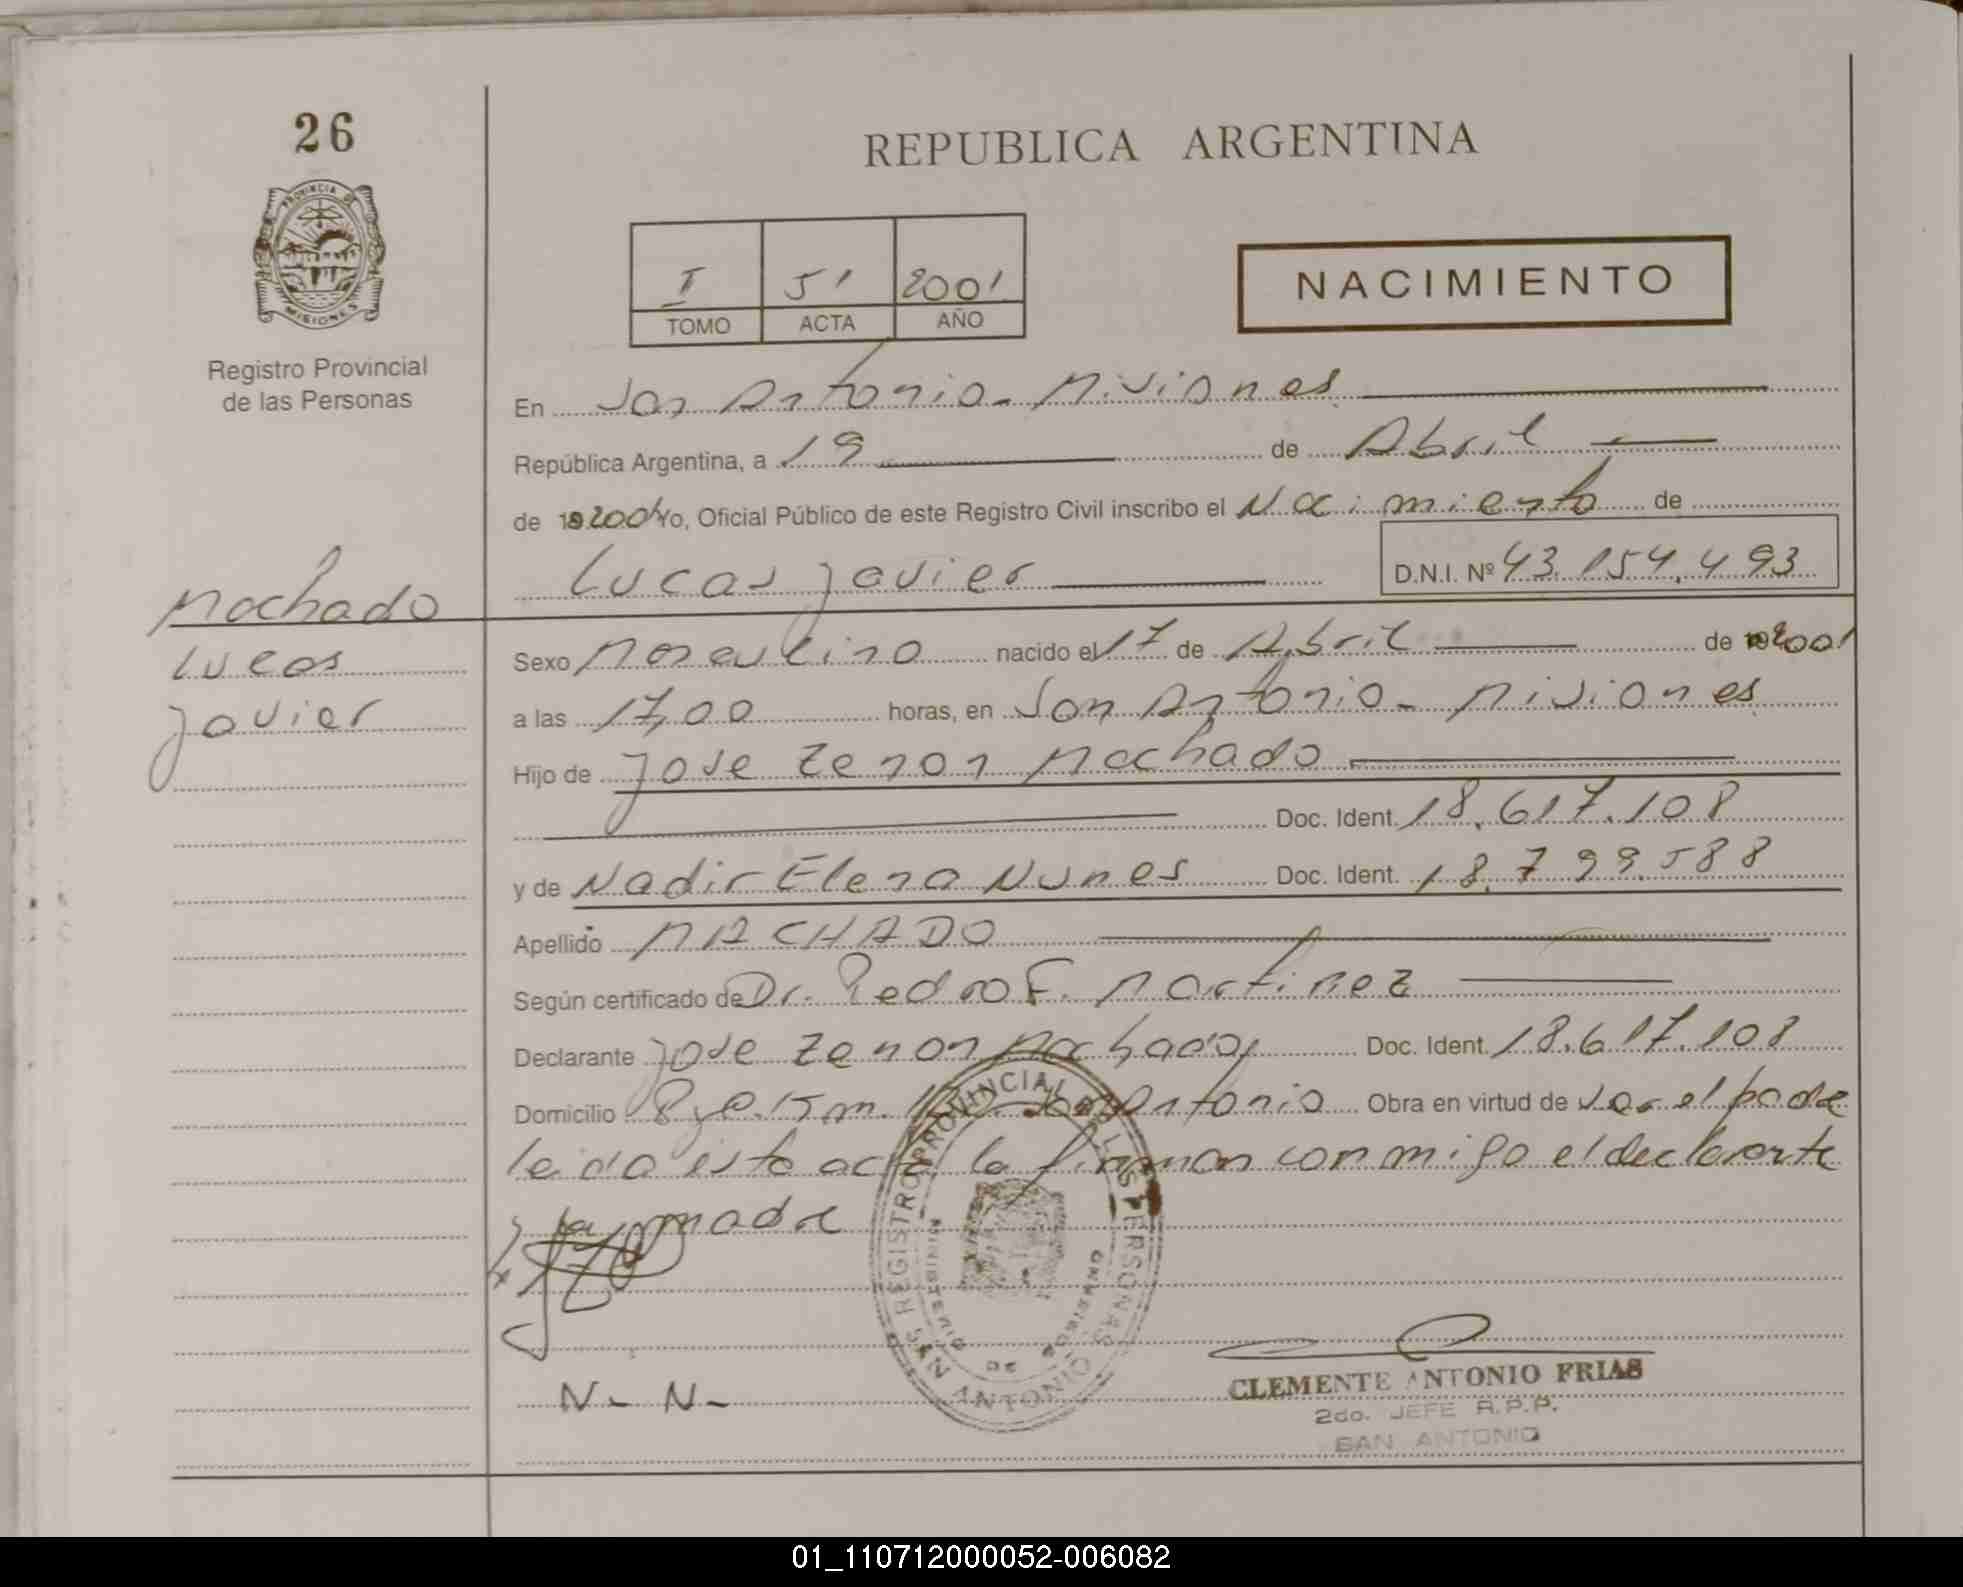 26
PROVINCIA DE
MISIONES
Registro Provincial
de las Personas
REPUBLICA ARGENTINA
I 51 2001
TOMO ACTA AÑO
NACIMIENTO
En San Antonio - Misiones
República Argentina, a 19 de Abril
de 192001 Yo, Oficial Público de este Registro Civil inscribo el Nacimiento de
Lucas Javier D.N.I. Nº 43.154.493
Machado
Lucas
Javier
Sexo Masculino nacido el 17 de Abril de 192001
a las 17,00 horas, en San Antonio - Misiones
Hijo de Jose Zenon Machado
Doc. Ident. 18.617.108
y de Nadir Elena Nunes Doc. Ident. 18.799.588
Apellido MACHADO
Según certificado de Dr. Pedro F. Martinez
Declarante Jose Zenon Machado Doc. Ident. 18.617.108
Domicilio San Antonio Obra en virtud de ser el padre
leida esta acta la firman conmigo el declarante
y la madre
REGISTRO PROVINCIAL DE LAS PERSONAS
MINISTERIO DE GOBIERNO
SAN ANTONIO
N - N -
CLEMENTE ANTONIO FRIAS
2do. JEFE R.P.P.
SAN ANTONIO
01_110712000052-006082